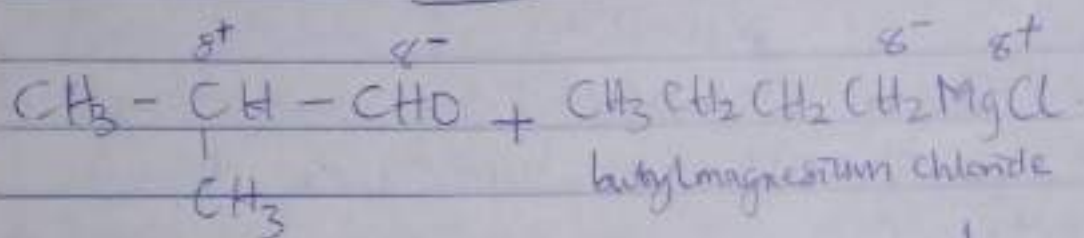 δ+ δ- δ- δ+
CH3 - CH - CHO + CH3CH2CH2CH2MgCl
CH3 butylmagnesium chloride